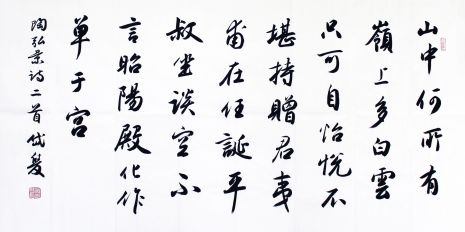 山中何所有
嶺上多白雲
只可自怡悦不
堪持贈君夷
甫在任誕平
叔坐談空不
言昭陽殿化作
单于宫
陶弘景诗二首